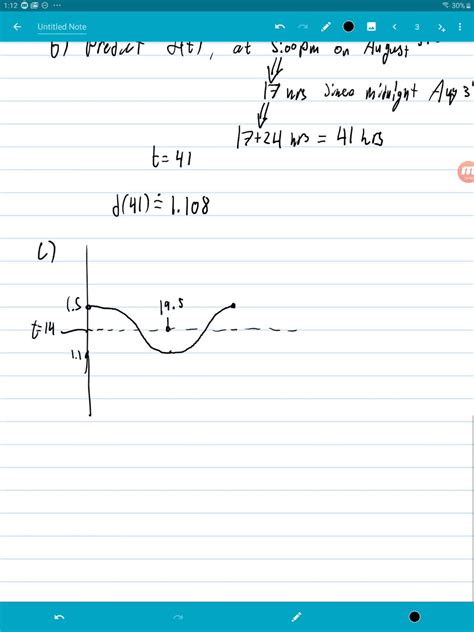 1:12 30%
Untitled Note 3
b) Predict d(t), at 5:00pm on August
17 hrs since midnight Aug 3
17+24 hrs = 41 hrs
t=41
d(41)≐1.108
c)
1.5 19.5
t=14
1.1